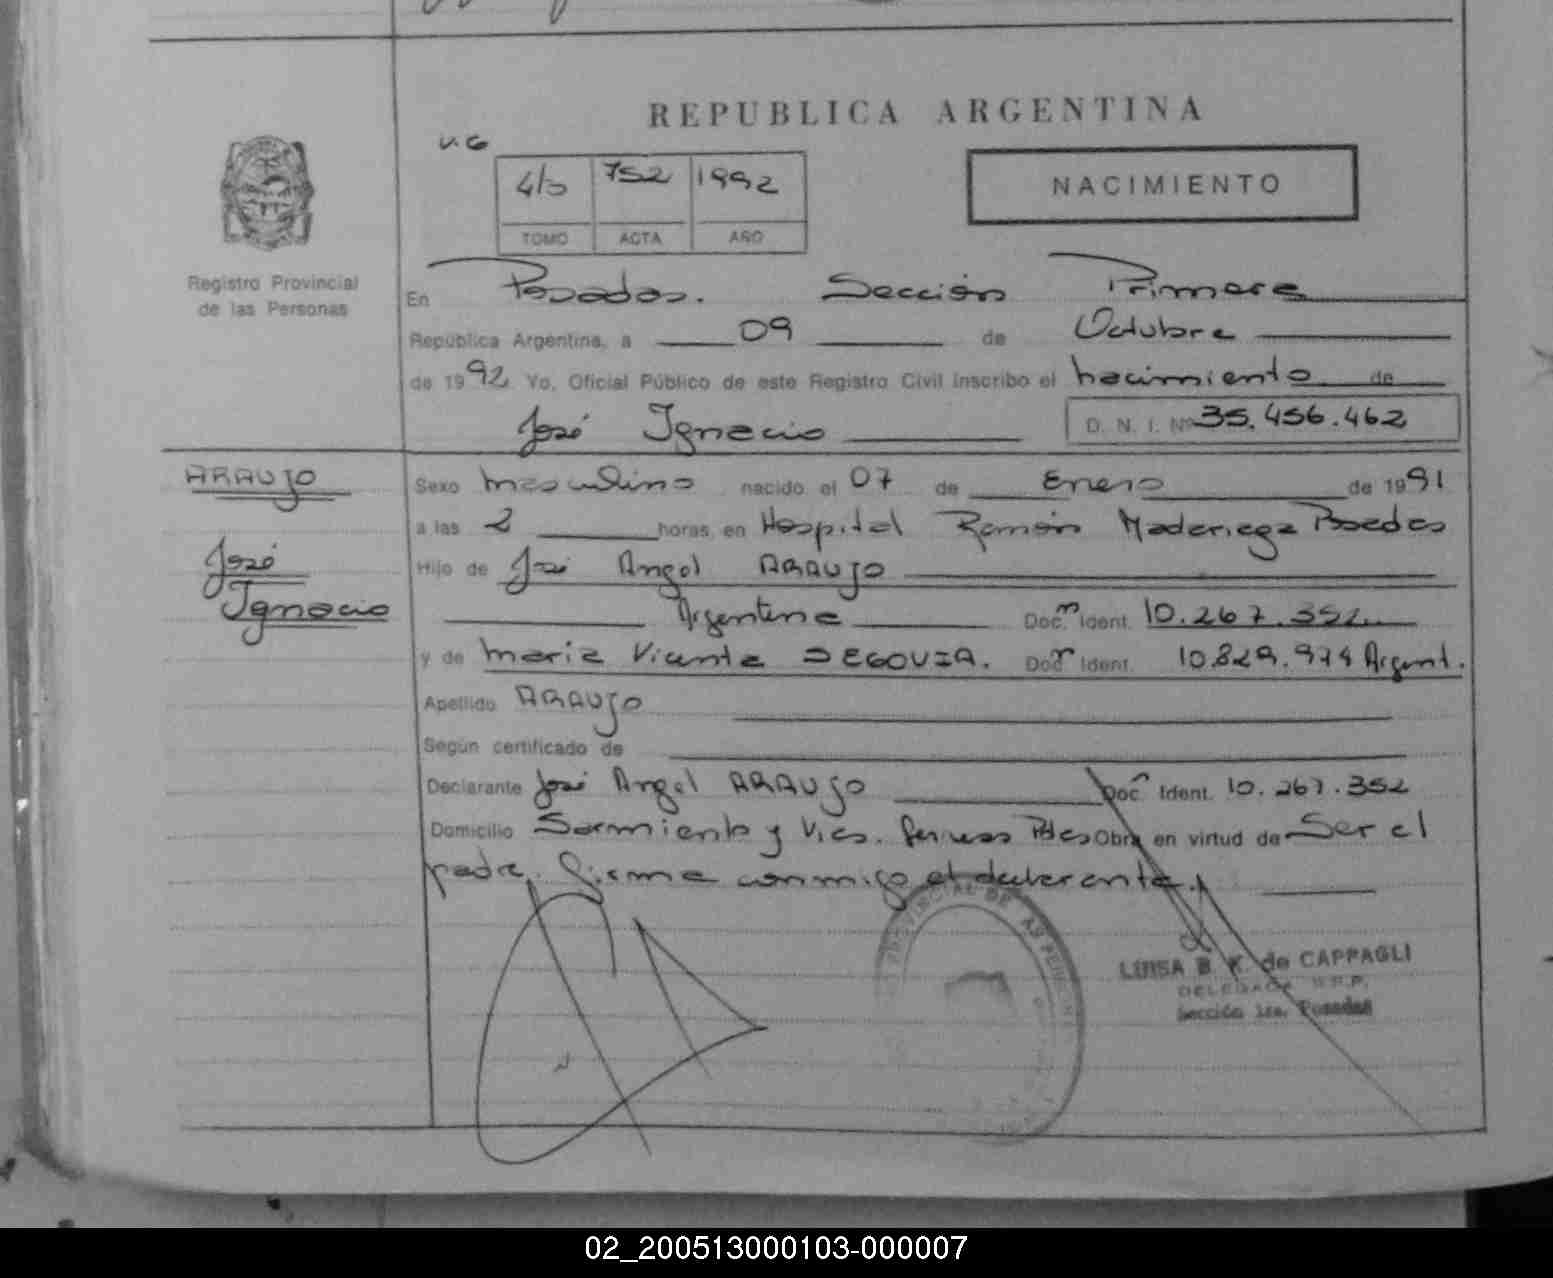 REPUBLICA ARGENTINA
4/5 752 1992
NACIMIENTO
TOMO ACTA AÑO
Registro Provincial
de las Personas
En Posadas. Sección Primera
República Argentina, a 09 de Octubre
de 1992 Yo, Oficial Público de este Registro Civil inscribo el nacimiento de
José Ignacio D. N. I. Nº 35.456.462
ARAUJO
José
Ignacio
Sexo masculino nacido el 07 de Enero de 1991
a las 2 horas, en Hospital Ramón Madariaga Posadas
Hijo de José Angel ARAUJO
Argentina Doc. Ident. 10.267.352
y de Maria Vicenta SEGOVIA. Doc. Ident. 10.829.974 Argent.
Apellido ARAUJO
Según certificado de
Declarante José Angel ARAUJO Doc. Ident. 10.267.352
Domicilio Sarmiento y Obra en virtud de Ser el
padre. Firma conmigo el declarante.
LUISA B. K. de CAPPAGLI
DELEGADA R.P.P.
Sección 1ra. Posadas
02_200513000103-000007